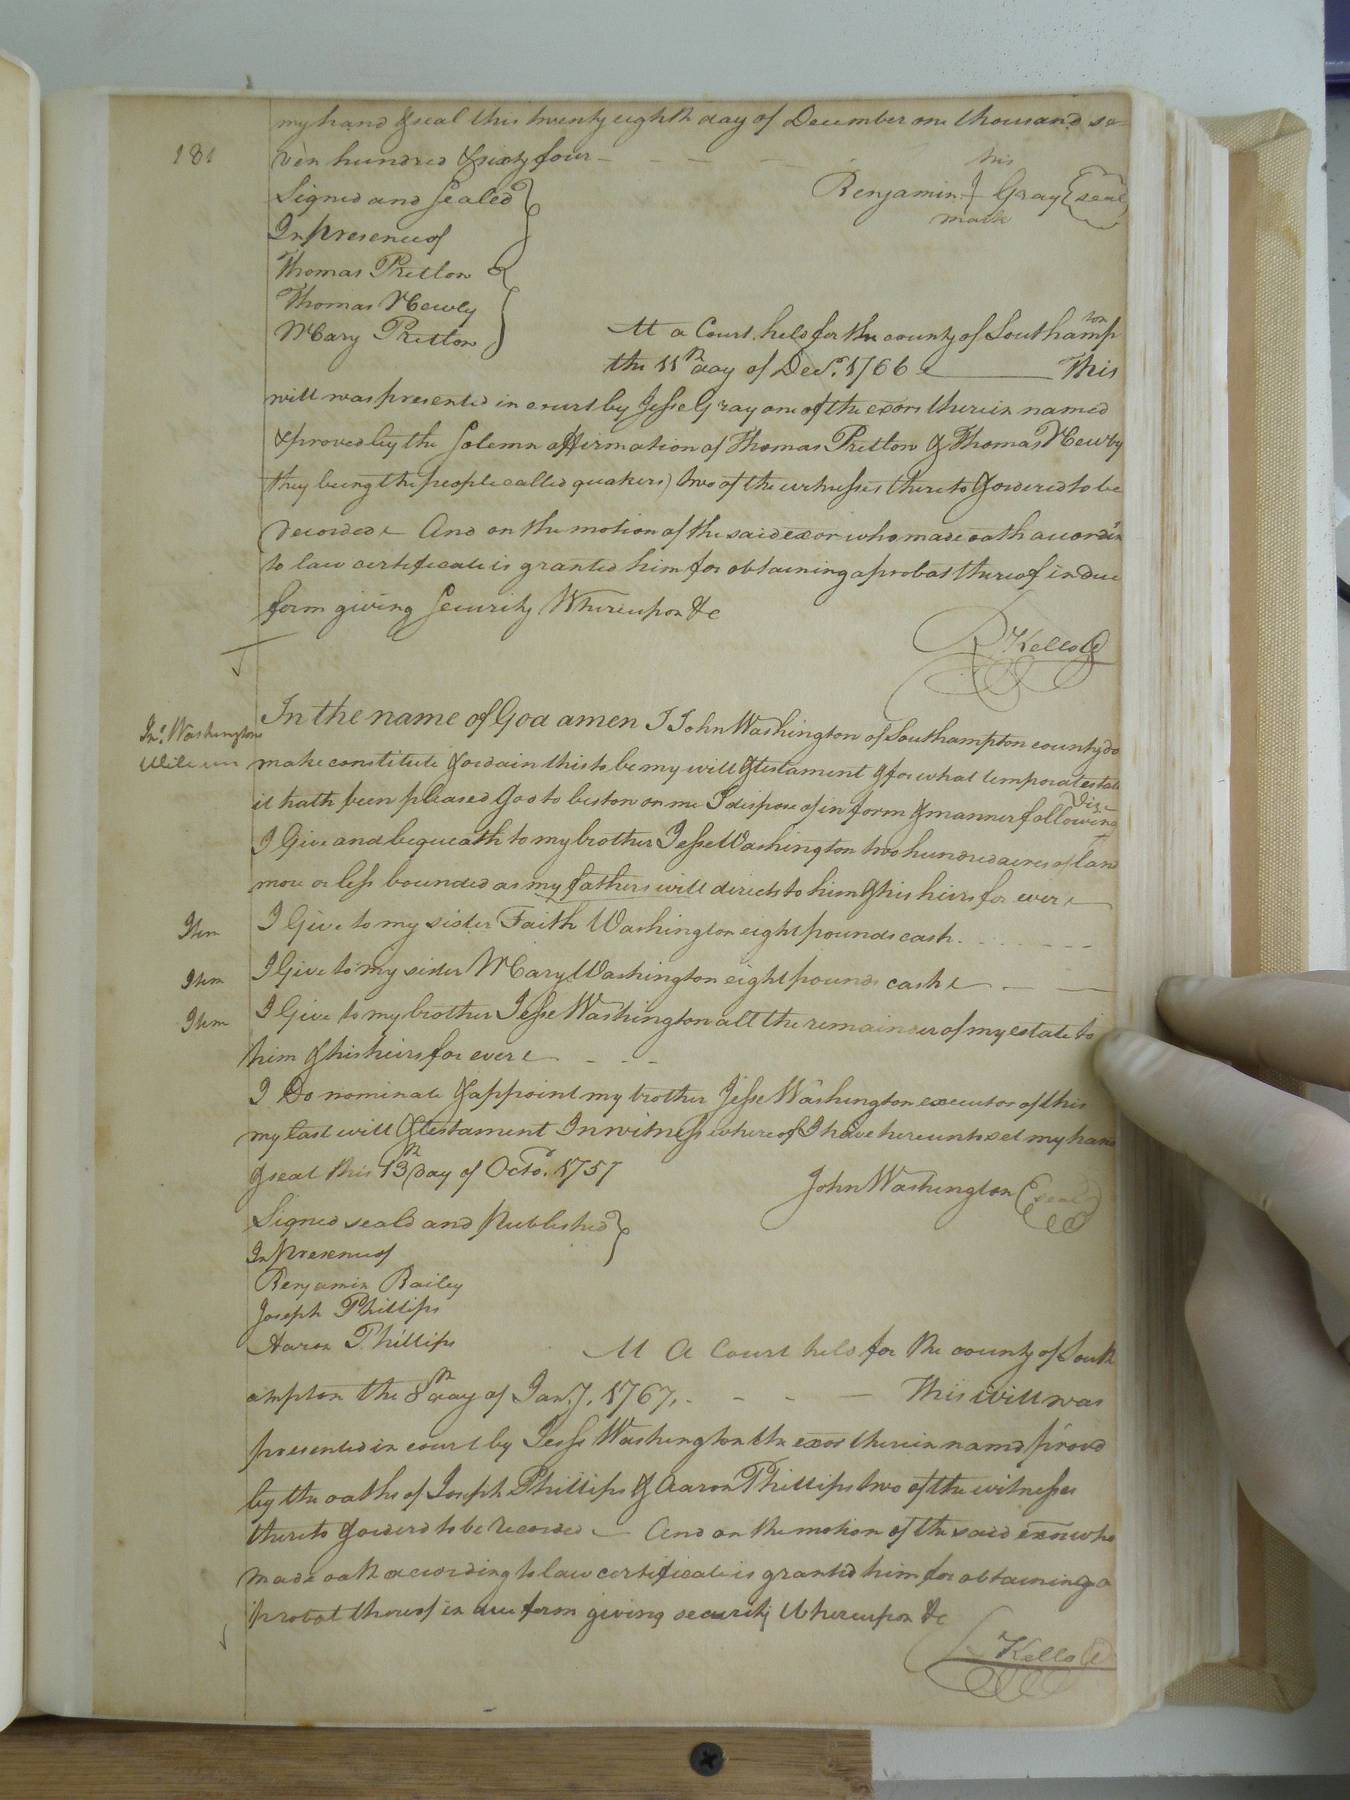 my hand & seal this twenty eighth day of December one thousand se=
181
ven hundred & sixty four
his
Signed and Sealed
Benjamin Gray seal
mark
In presence of
Thomas Pretlow
Thomas Newby
Mary Pretlow
At a Court held for the county of Southampton
the 11th day of Decr. 1766 This
will was presented in court by Jesse Gray one of the exors therein named
& proved by the Solemn affirmation of Thomas Pretlow & Thomas Newby
they being the people called quakers) two of the witnesses thereto & ordered to be
recorded And on the motion of the said exor who made oath accordin
to law certificate is granted him for obtaining a probat thereof in due
form giving Security Whereupon &c
R Kello
In the name of God amen I John Washington of Southampton county do
Jno. Washington
make constitute & ordain this to be my will & testament & for what temporal estate
it hath been pleased God to bestow on me I dispose of in form & manner following Viz
I Give and bequeath to my brother Jesse Washington two hundred acres of land
more or less bounded as my fathers will directs to him & his heirs for ever
Item I Give to my sister Faith Washington eight pounds cash
Item I Give to my sister Mary Washington eight pounds cash
Item I Give to my brother Jesse Washington all the remainder of my estate to
him & his heirs for ever
I Do nominate & appoint my brother Jesse Washington executor of this
my last will & testament In witness whereof I have hereunto set my hand
& seal this 13th day of Octo. 1757 John Washington seal
Signed seald and Published
In presence of
Benjamin Bailey
Joseph Phillips
Aaron Phillips
At A Court held for the county of South
ampton the 8th day of Jany. 1767. This will was
presented in court by Jess Washington the exor therein namd provd
by the oaths of Joseph Phillips & Aaron Phillips two of the witnesses
thereto & orderd to be Recorded And on the motion of the said exor who
made oath according to law certificate is grantd him for obtaining a
probat thereof in due form giving security Whereupon &c
Kello